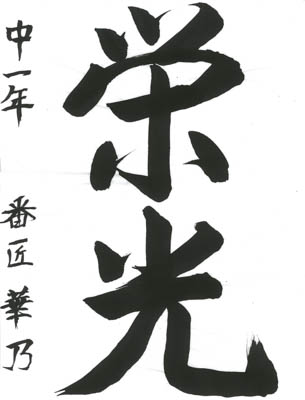 栄光
中一年 番匠 華乃